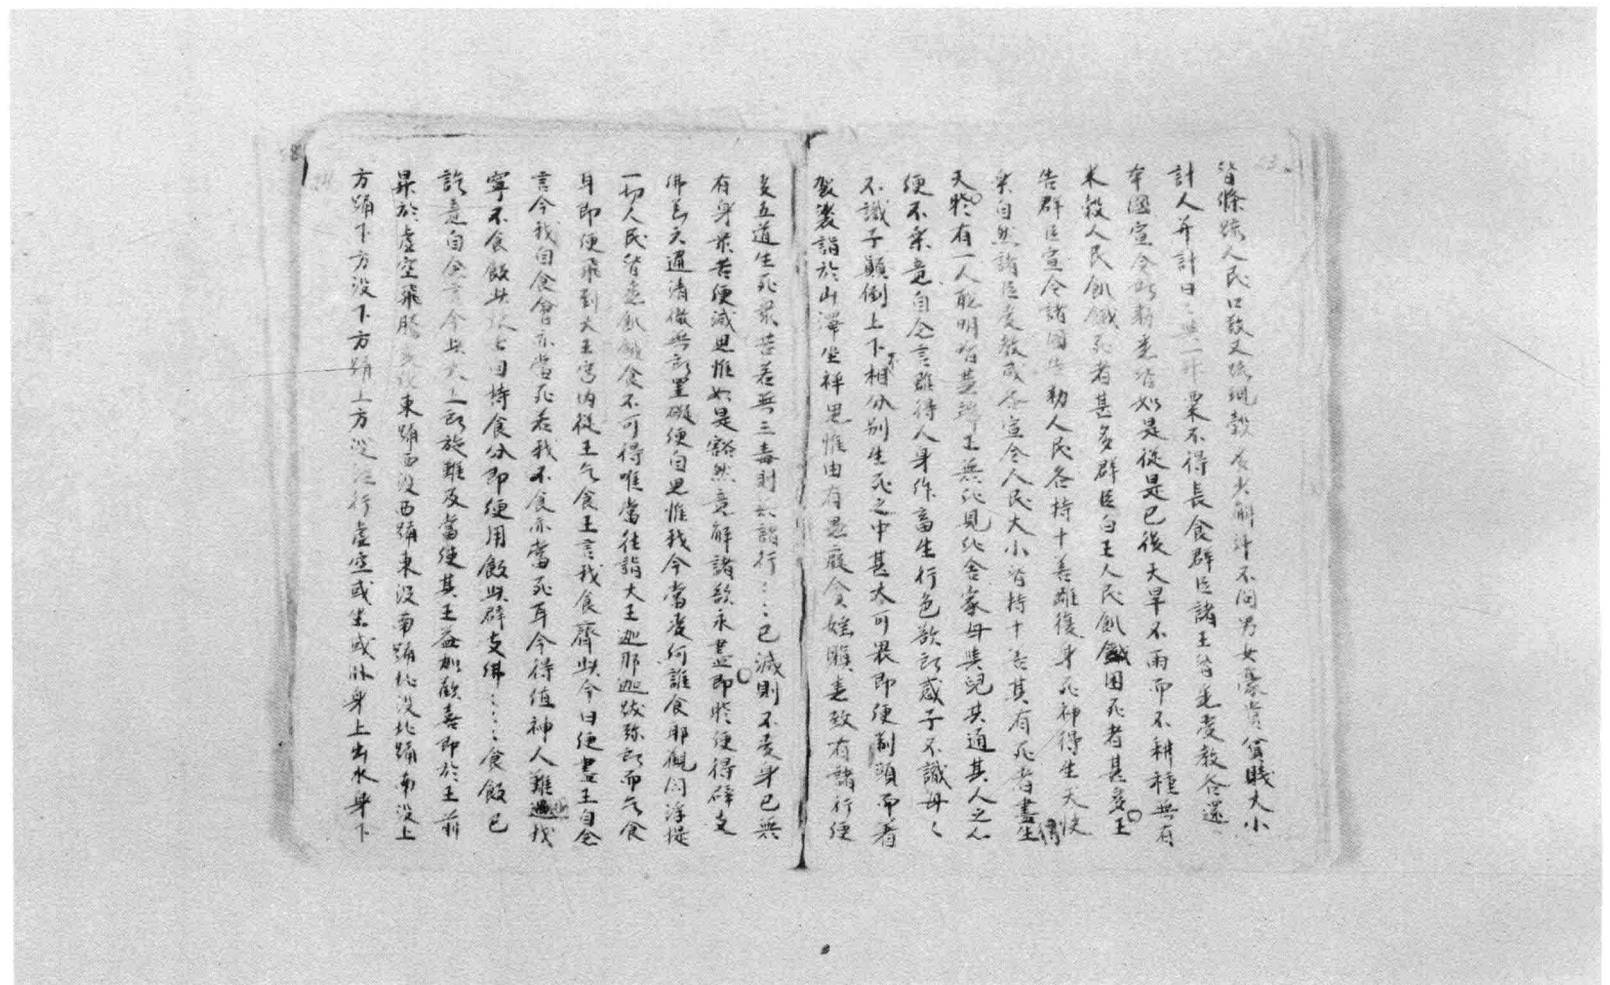 皆條疏人民口數又疏現穀多少斛斗不問男女豪貴貧賤大小
計人并計日〻與一升粟不得長食群臣諸王皆悉受教各還
本國宣令所勑悉皆如是從是已後天旱不雨而不耕種無有
米穀人民飢餓死者甚多群臣白王人民飢餓困死者甚多王
告群臣宣令諸國告勑人民各持十善雖復身死神得生天快
樂自然諸臣受教或令宣令人民大小皆持十善其有死者盡得生
天時有一人聦明智慧 王無 見此舍家母與兒共通其人之心
便不樂意自念言雖得人身作畜生行色欲所惑子不識母〻
不識子顛倒上下不相分別生死之中甚大可畏即便剃頭而着
袈裟詣於山澤坐禪思惟由有愚癡貪婬瞋恚致有諸行便
受五道生死衆苦若無三毒則無諸行〻〻已滅則不受身已無
有身衆苦便滅思惟如是豁然意解諸欲永盡即時便得辟支
佛 天通清徹無所罣礙便自思惟我今當受何誰食耶觀閻浮提
一切人民皆悉飢餓食不可得唯當往詣大王迦那迦跋弥所而乞食
身即便飛到大王宮內從王乞食王言我食齊此今日便盡王自念
言今我自食會亦當死若我不食亦當死耳今得值神人難遇我
寧不食飯與 日持食分即便用飯與辟支佛〻〻〻食飯已
訖意自念言今此大王所施難及當使其王益加歡喜即於王前
昇於虛空飛騰 東踊西沒西踊東沒南踊北沒北踊南沒上
方踊下方沒下方踊上方沒 行虛空或坐或臥身上出水身下